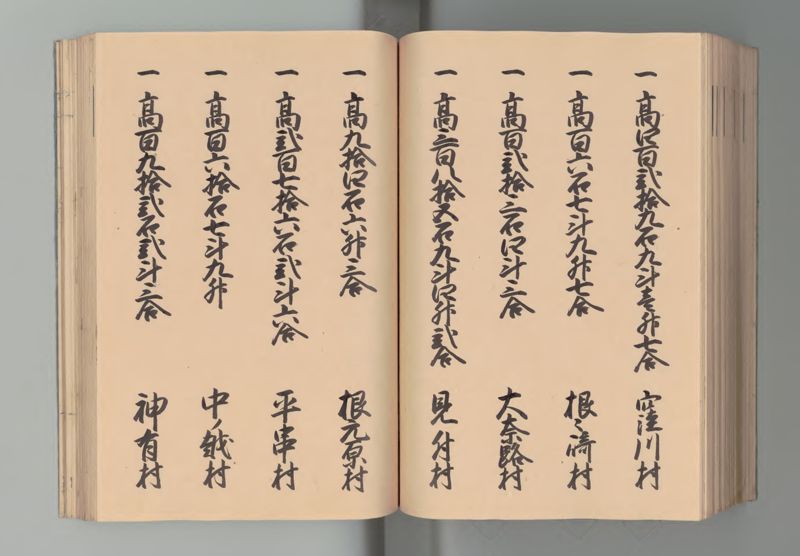 一 高四百弐拾九石九斗壱升七合 窪川村
一 高百六石七斗九升七合 根々崎村
一 高百弐拾三石四斗三合 大奈路村
一 高三百八拾五石九斗四升弐合 見付村
一 高九拾四石六升三合 根元原村
一 高弐百七拾六石弐斗六合 平串村
一 高百六拾石七斗九升 中ノ越村
一 高百九拾弐石弐斗三合 神有村